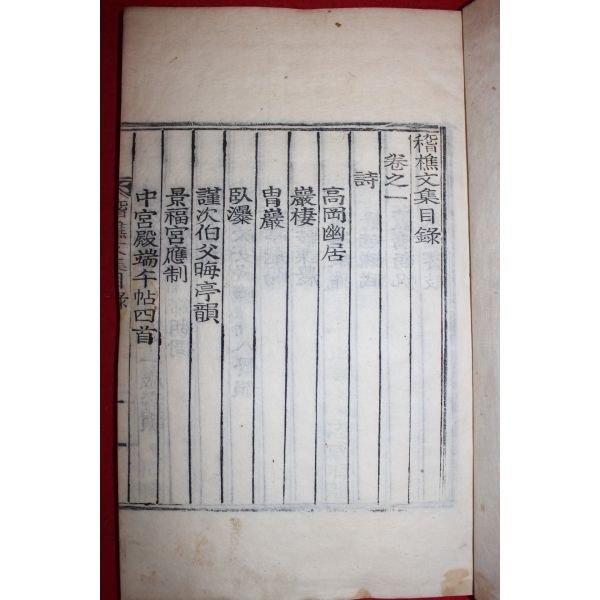 稽樵文集目錄
卷之一
詩
高岡幽居
巖棲
冑巖
臥瀑
謹次伯父晦亭韻
景福宮應制
中宮殿端午帖四首
稽樵文集目錄
一